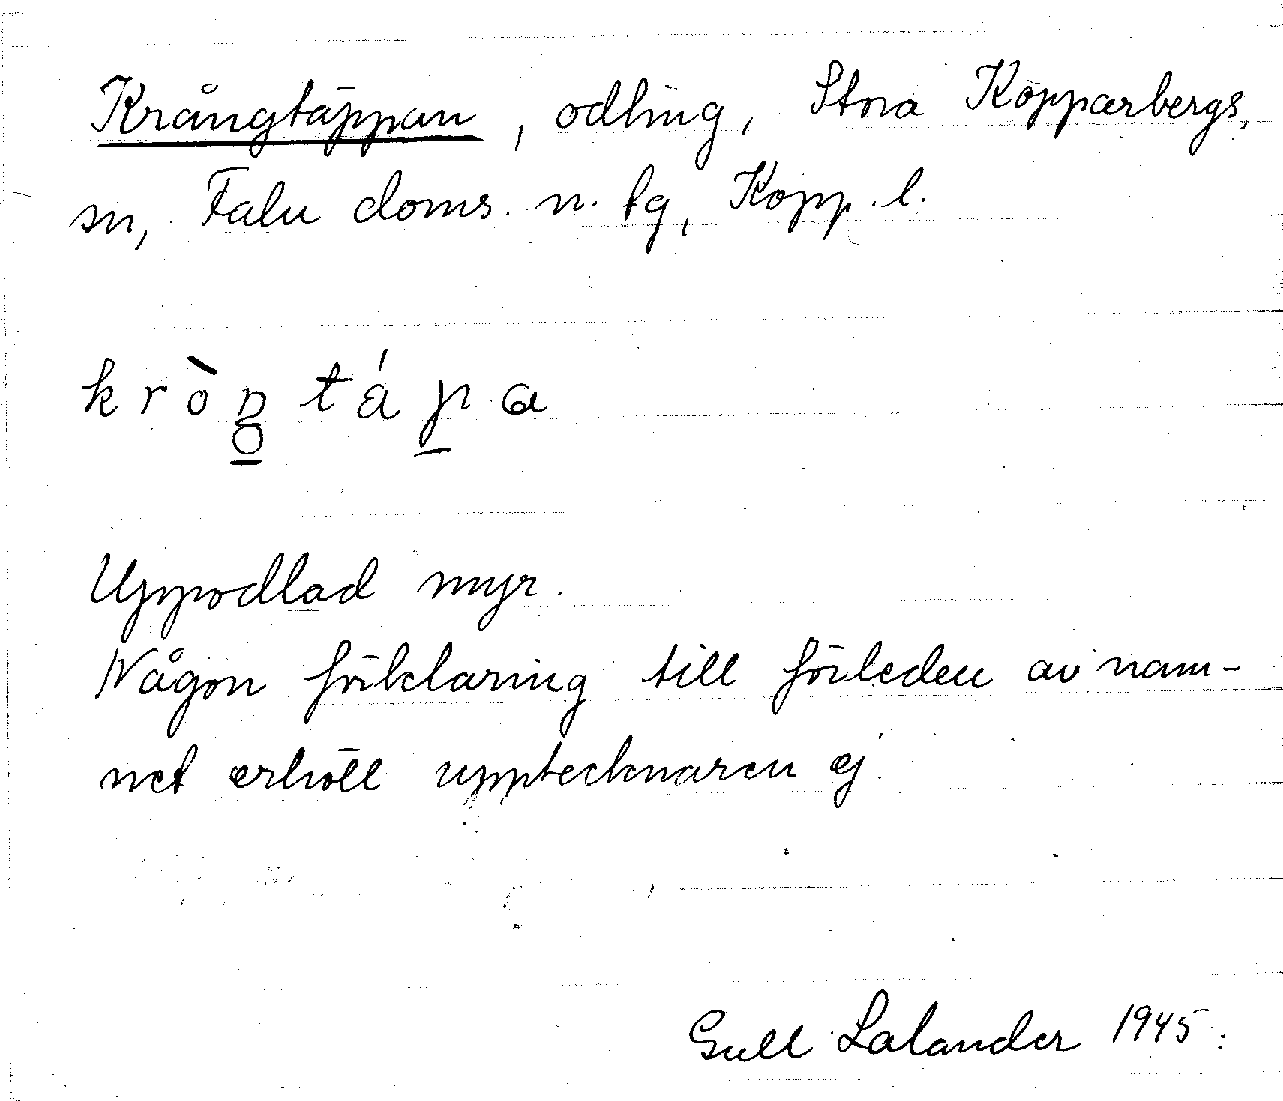 Krångtäppan, odling, Stora Kopparbergs,
sn, Falu doms. n. tg, Kopp. l.
kròŋ̥tápa
Uppodlad myr.
Någon förklaring till förleden av nam-
net erhöll upptecknaren ej.
Gull Lalander 1945.